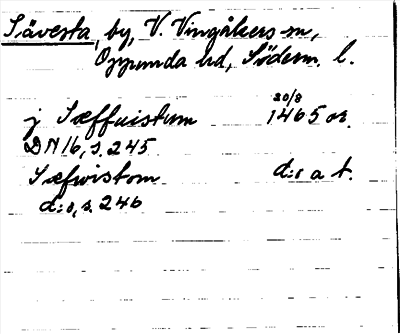 Sävesta, by, V. Vingåkers sn,
Oppunda hd, Söderm. l.
j Sæffuistum 20/8 1465 or.
DN 16, s. 245
Sæfwistom d:o a t.
d:o, s. 246